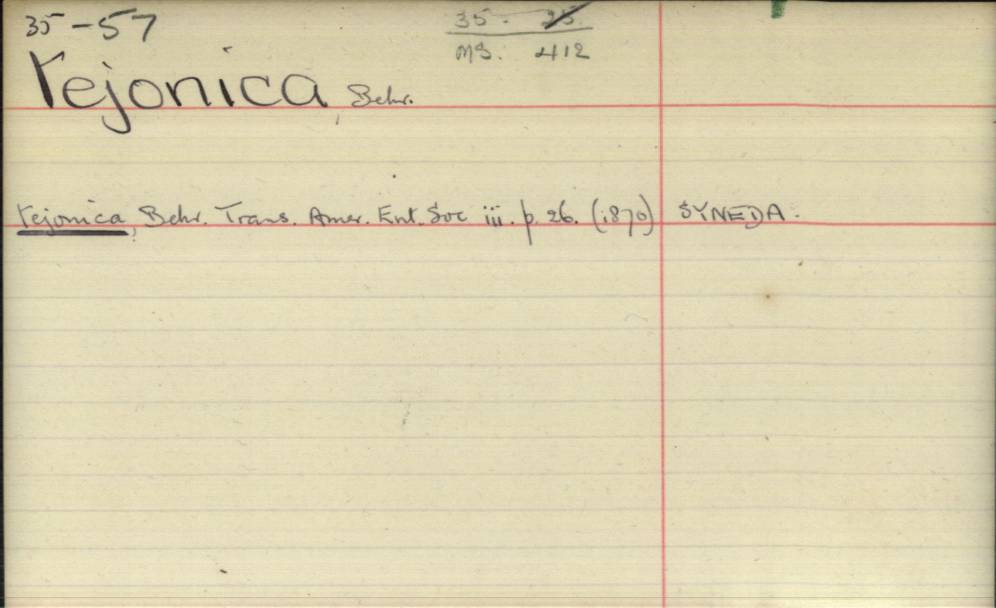 35-57
35. 25.
MS. 412
tejonica, Behr.
tejonica, Behr. Trans. Amer. Ent. Soc iii. p. 26. (1870) SYNEDA.